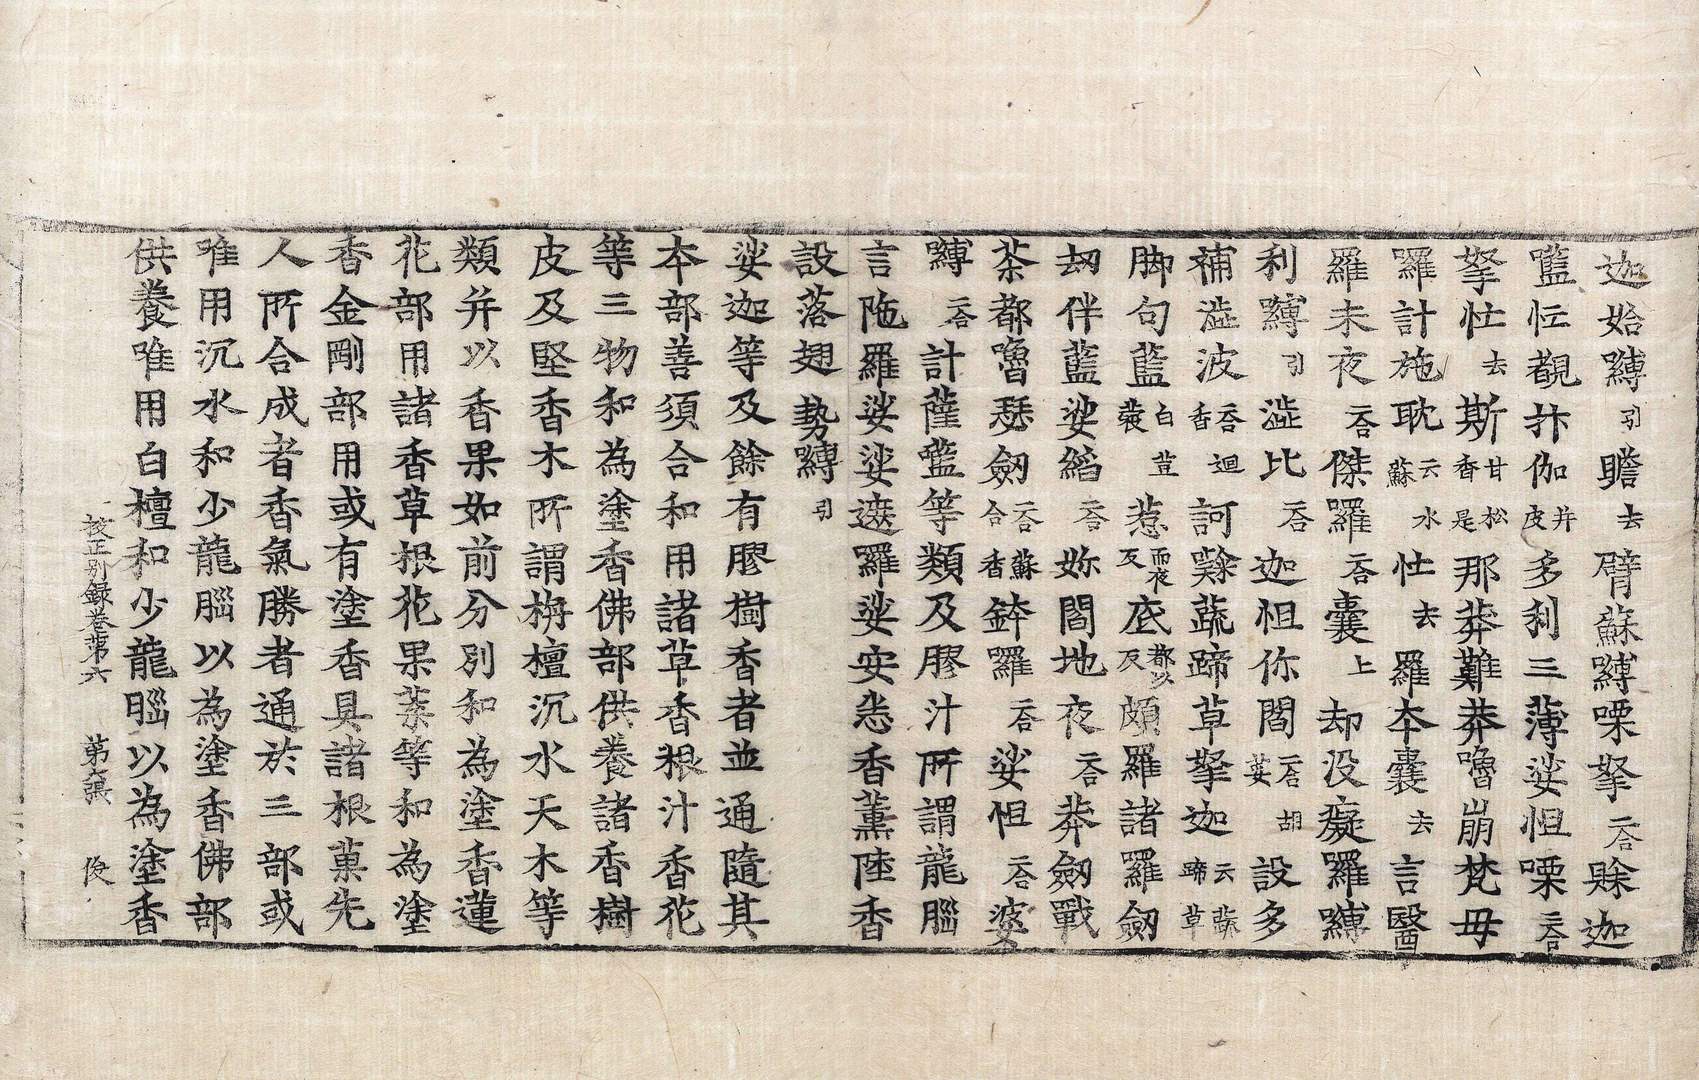 迦始嚩引瞻去臂蘇嚩㗚拏二合賖迦
㘕怔覩抃伽并皮多利三薄娑怛㗚二合
拏怔去斯甘松香是那莽難莽嚕崩梵毋
囉計施耽云水蘇怔去羅本囊去言醫
羅未夜二合傑羅二合囊上却没癡羅嚩
利嚩引澁比二合迦怛你閻二合胡荽設多
補澁波二合迴香訶㗨蔬蹄草拏迦云蔬蹄草
脚句藍白荳蔻惹而夜反底都以反頗羅諸羅劒
刼伴藍娑縚二合妳閻地夜二合莽劒戰
茶都嚕瑟劒二合蘇合香鉢羅二合娑怛二合婆
嚩二合計薩㘕等類及膠汁所謂龍腦
言陁羅娑娑遮羅娑安悉香薰陸香
設落翅勢嚩引
娑迦等及餘有膠樹香者並通隨其
本部善須合和用諸草香根汁香花
等三物和為塗香佛部供養諸香樹
皮及堅香木所謂栴檀沉水天木等
類并以香果如前分別和為塗香蓮
花部用諸香草根花果葉等和為塗
香金剛部用或有塗香具諸根菓先
人所合成者香氣勝者通於三部或
唯用沉水和少龍腦以為塗香佛部
供養唯用白檀和少龍腦以為塗香
校正別録卷第六 第六張 俊